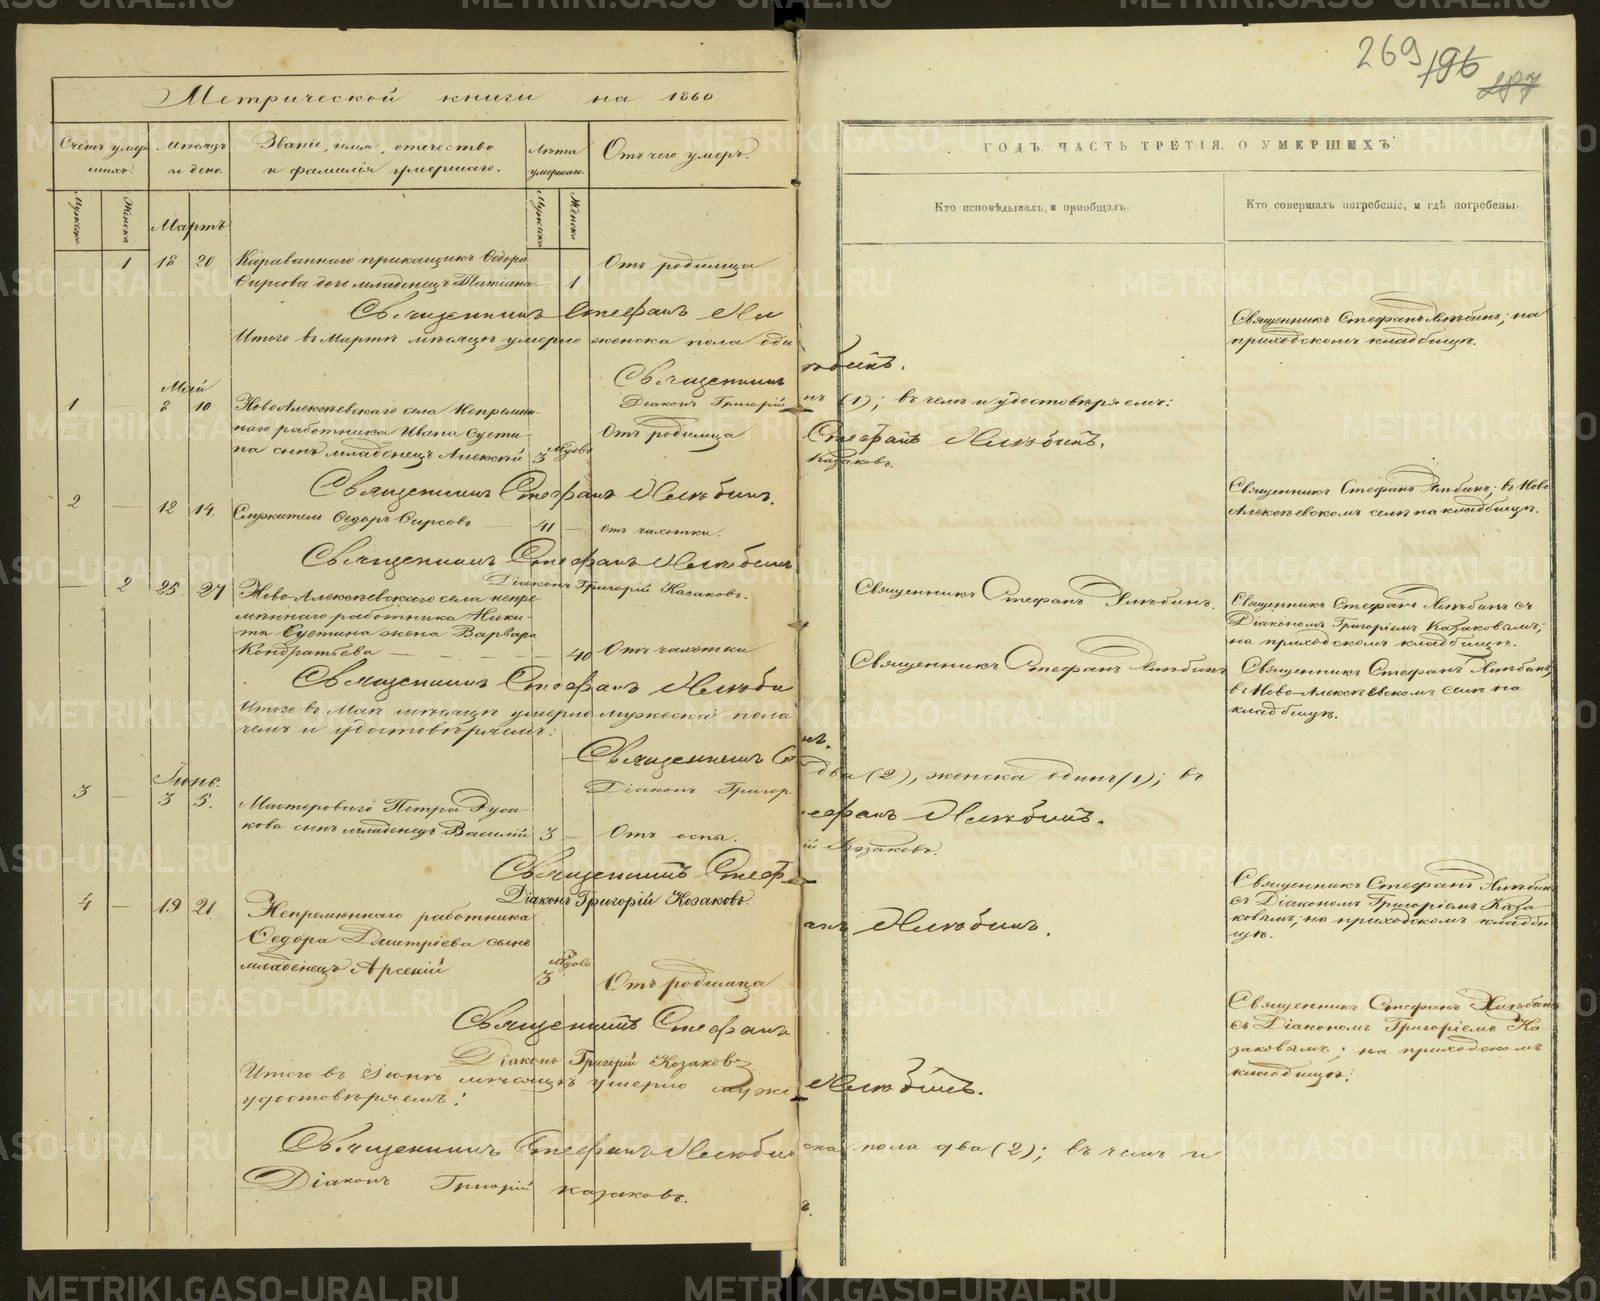 269 196 187
Метрической книги на 1860
ГОДЪ. ЧАСТЬ ТРЕТІЯ. О УМЕРШИХЪ.
Счетъ умер-
шихъ.
Мѣсяцъ
и день.
Званіе, имя, отечество
и фамилія умершаго.
Лѣта
умершаго.
Отъ чего умеръ.
Кто исповѣдывалъ, и пріобщалъ.
Кто совершалъ погребеніе, и гдѣ погребены.
Мужска.
Женска
Мартъ
Мужска
Женска
1 18 20 Караваннаго прикащика Ѳедора
Ѳирсова дочь младенецъ Татіана 1
Отъ родимца
Священникъ Стефанъ Хлѣбинъ; на
приходскомъ кладбищѣ.
Священникъ Стефанъ Хлѣбинъ.
Итого въ Мартѣ мѣсяцѣ умерло женска пола одинъ (1); въ чемъ и удостовѣряемъ:
Священникъ Стефанъ Хлѣбинъ.
Діаконъ Григорій Казаковъ.
Май
1 — 8 10 НовоАлексѣевскаго села непремѣн-
наго работника Ивана Суети-
на сынъ младенецъ Алексѣй 3
Отъ родимца
Священникъ Стефанъ Хлѣбинъ; въ Ново
Алексѣевскомъ селѣ на кладбищѣ.
Священникъ Стефанъ Хлѣбинъ.
2 — 12 14. Служитель Ѳедоръ Ѳирсовъ — 41 — отъ чахотки.
Священникъ Стефанъ Хлѣбинъ.
Священникъ Стефанъ Хлѣбинъ съ
Діакономъ Григоріемъ Казаковымъ;
на приходскомъ кладбищѣ.
Священникъ Стефанъ Хлѣбинъ
Діаконъ Григорій Казаковъ.
— 2 25. 27 Ново-Алексѣевскаго села непре-
мѣннаго работника Ники-
ты Суетина жена Варвара
Кондратьева — — — — 40 Отъ чахотки
Священникъ Стефанъ Хлѣбинъ
Священникъ Стефанъ Хлѣбинъ,
въ Ново-Алексѣевскомъ селѣ на
кладбищѣ.
Священникъ Стефанъ Хлѣбинъ.
Итого въ Маѣ мѣсяцѣ умерло мужеска пола два (2), женска одинъ (1); въ
чемъ и удостовѣряемъ:
Священникъ Стефанъ Хлѣбинъ.
Діаконъ Григорій Козаковъ.
Іюнь.
3 — 3 5. Мастероваго Петра Руса-
кова сынъ младенецъ Василій 3 — Отъ оспы.
Священникъ Стефанъ Хлѣбинъ
съ Діакономъ Григоріемъ Каза-
ковымъ; на приходскомъ кладби-
щѣ.
Священникъ Стефанъ Хлѣбинъ.
Діаконъ Григорій Козаковъ.
4 — 19 21 Непремѣннаго работника
Ѳедора Дмитріева сынъ
младенецъ Арсеній 3 Отъ родимца
Священникъ Стефанъ Хлѣбинъ
съ Діакономъ Григоріемъ Ка
заковымъ; на приходскомъ
кладбищѣ.
Священникъ Стефанъ Хлѣбинъ.
Діаконъ Григорій Козаковъ
Итого въ Іюнѣ мѣсяцѣ умерло мужеска пола два (2); въ чемъ и
удостовѣряемъ:
Священникъ Стефанъ Хлѣбинъ
Діаконъ Григорій Казаковъ.
METRIKI.GASO-URAL.RU